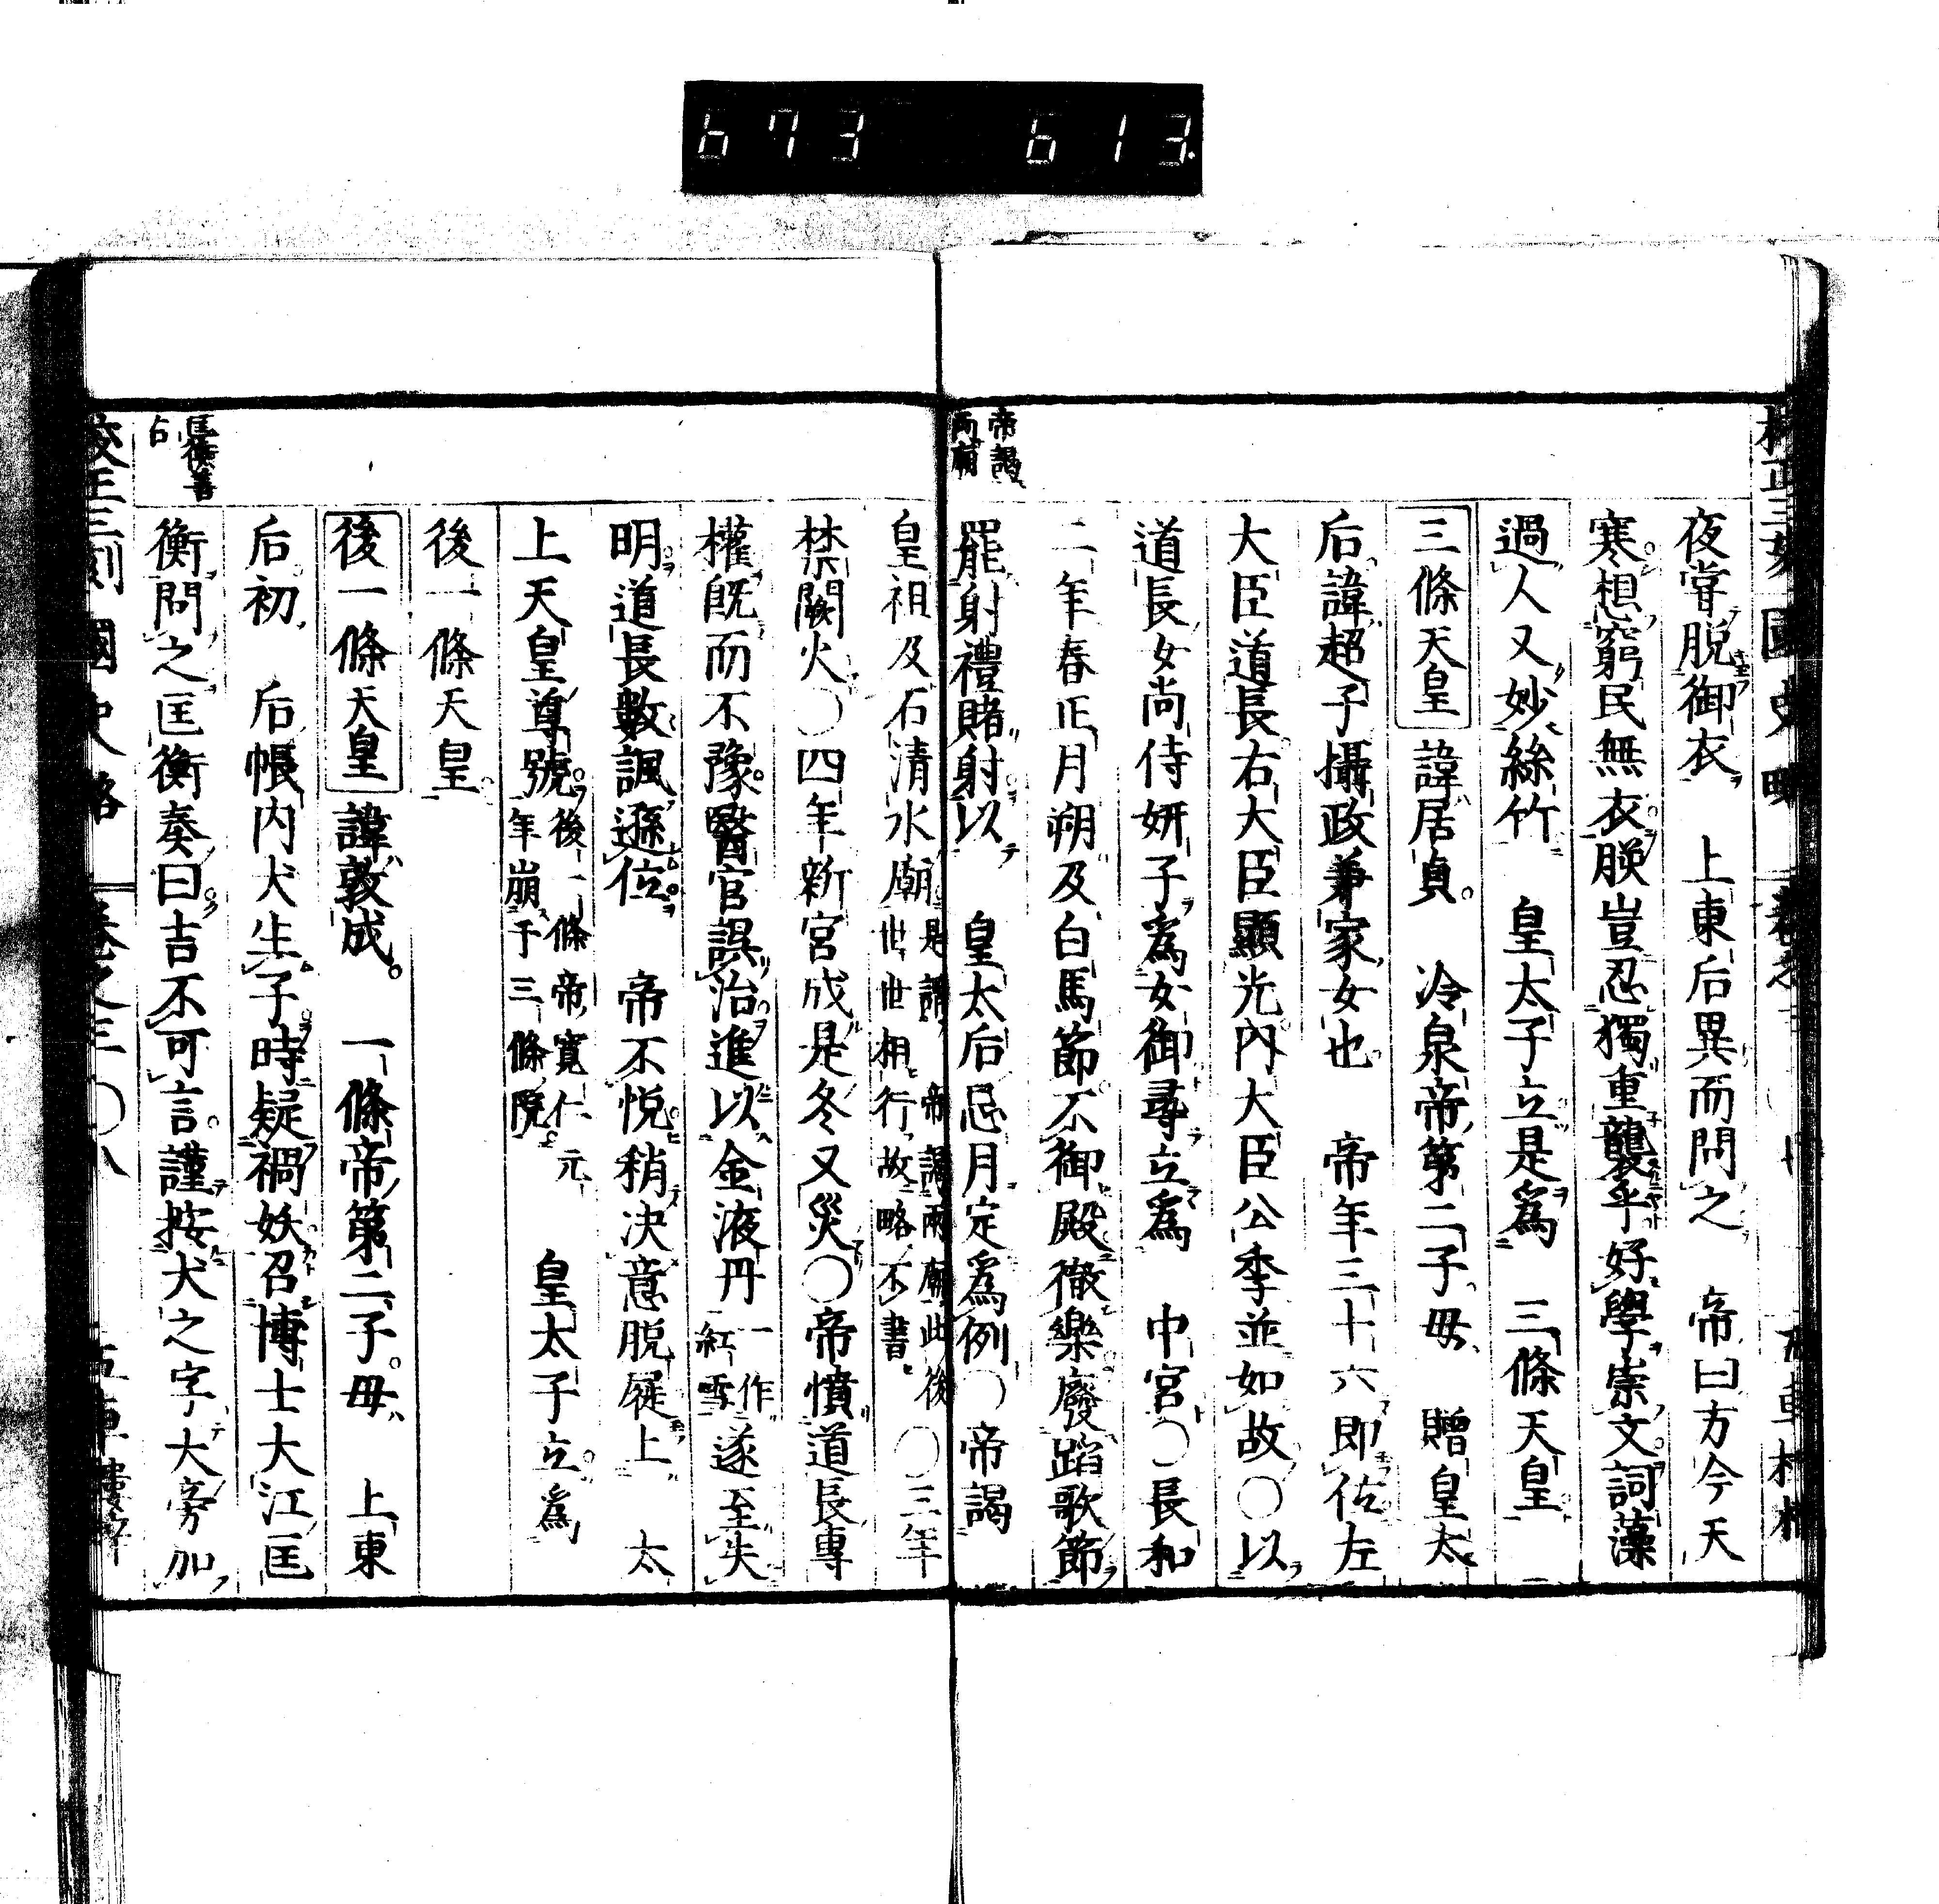 673 613
夜嘗脱御衣 上東后異而問之 帝曰方今天
寒想窮民無衣朕豈忍獨重襲乎好學崇文詞藻
過人又妙絲竹 皇太子立是爲 三條天皇
三條天皇 諱居貞 冷泉帝第二子母 贈皇太
后諱超子攝政兼家女也 帝年三十六即位左
大臣道長右大臣顯光內大臣公季並如故○以
道長女尚侍妍子爲女御尋立爲 中宮○長和
二年春正月朔及白馬節不御殿徹樂廢蹈歌節
帝謁
兩廟
罷射禮賭射以 皇太后忌月定爲例○帝謁
皇祖及石清水廟 是謂 帝謁兩廟此後
世世相行故略不書 ○三年
禁闕火○四年新宮成是冬又災○帝憤道長專
權既而不豫醫官誤治進以金液丹 一作
紅雪 遂至失
明道長數諷遜位 帝不悅稍决意脱屣上 太
上天皇尊號 後一條帝寬仁元
年崩于三條院 皇太子立爲
後一條天皇
後一條天皇 諱敦成 一條帝第二子母 上東
后初 后帳内犬生子時疑禍妖召博士大江匡
匡衡善
占
衡問之匡衡奏曰吉不可言謹按犬之字大旁加